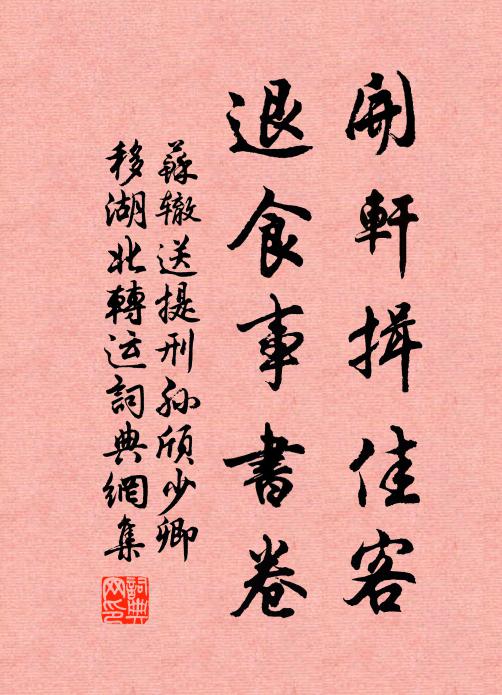 開軒揖佳客
退食事書卷
蘇辙送提刑孙頎少卿
移湖北轉运詞典網集
詞典网印